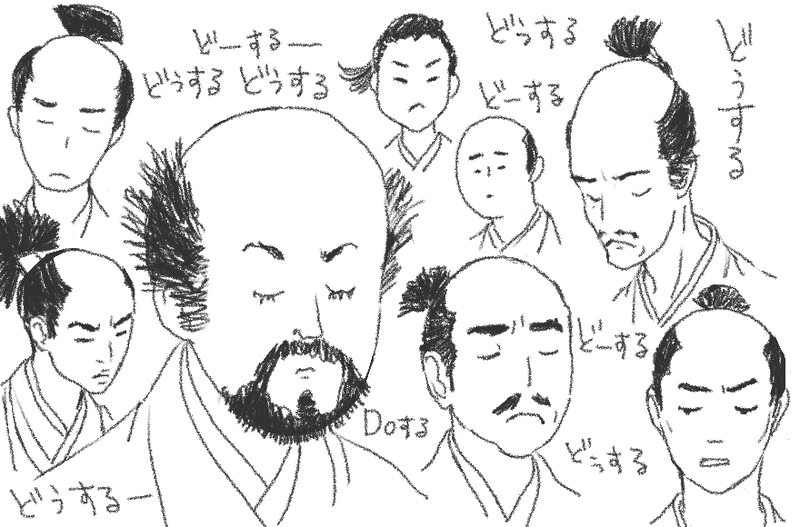 どーするー
どぅする どぅする
どぅする
どーする
どうする
どーする
Doする
どぅする
どうするー